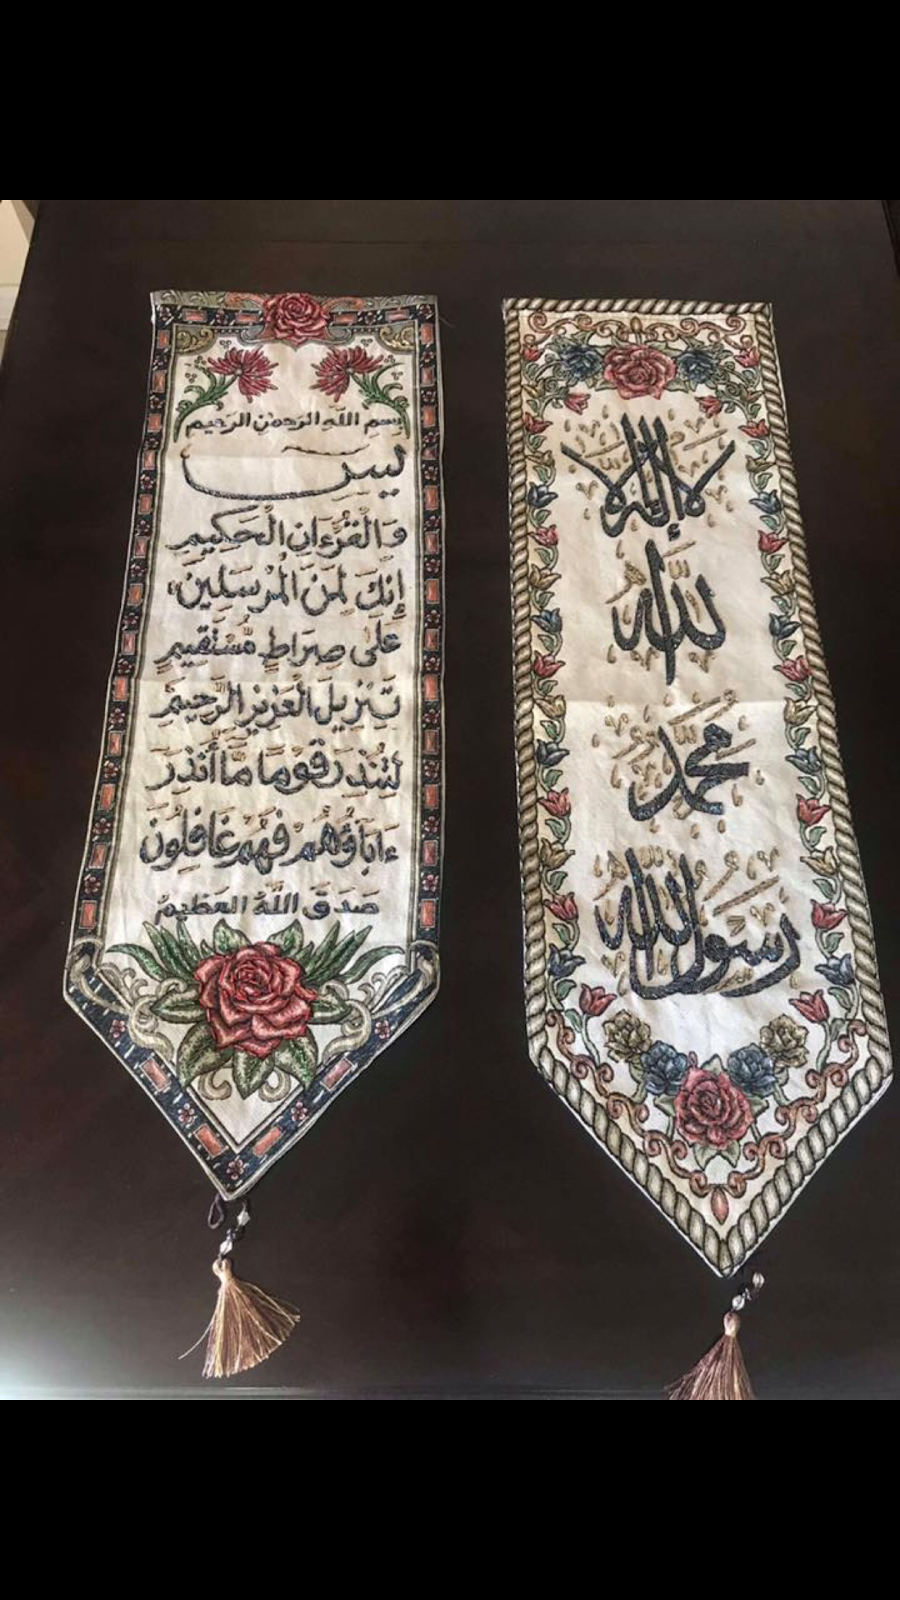 بِسْمِ اللَّهِ الرَّحْمَٰنِ الرَّحِيمِ
يسٓ
وَالْقُرْءَانِ الْحَكِيمِ
إِنَّكَ لَمِنَ الْمُرْسَلِينَ
عَلَىٰ صِرَاطٍ مُّسْتَقِيمٍ
تَنْزِيلَ الْعَزِيزِ الرَّحِيمِ
لِتُنْذِرَ قَوْمًا مَّا أُنْذِرَ
ءَابَآؤُهُمْ فَهُمْ غَافِلُونَ
صَدَقَ اللَّهُ الْعَظِيمُ
لا إله إلا
الله
محمد
رسول الله